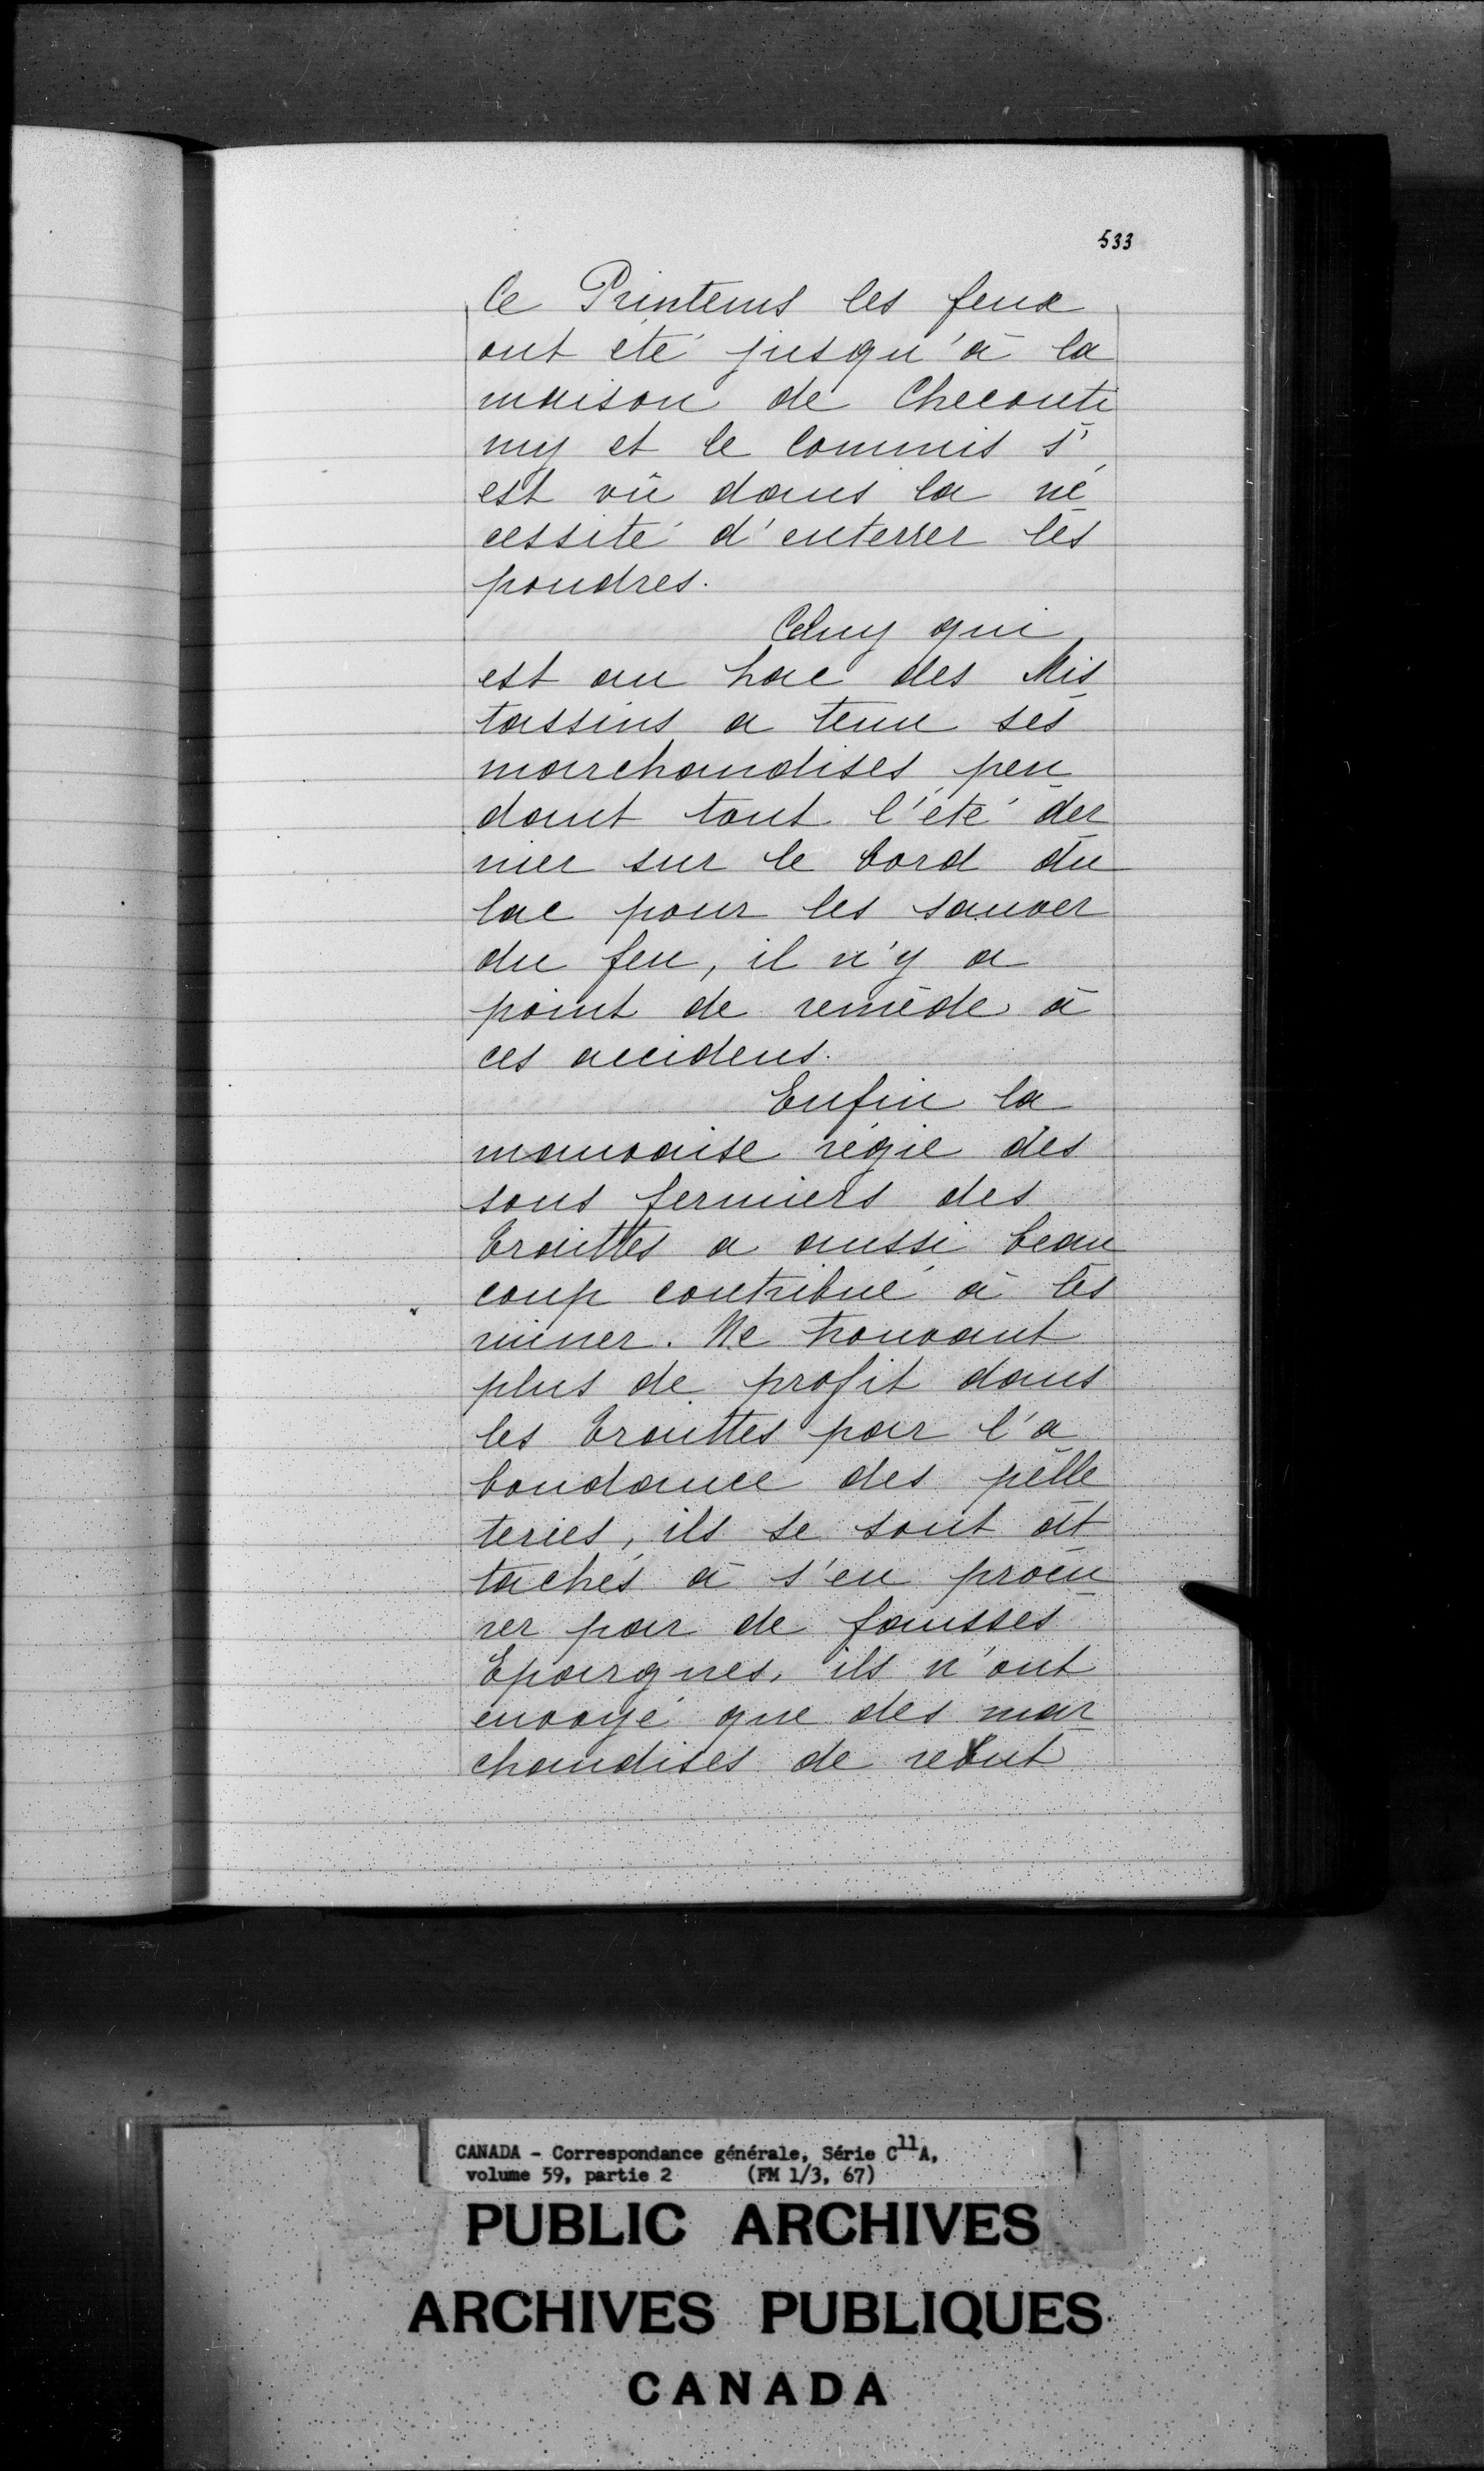 533
Ce Printems les feux
ont été jusqu'à la
maison de Checouti
my et le Commis s'
est vû dans la né
cessité d'enterrer les
poudres.
Celuy qui
est au Lac des Mis
tassins a tenu ses
marchandises pen
dant tout l'été der
nier sur le bord du
lac pour les sauver
du feu, il n'y a
point de reméde à
ces accidens.
Enfin la
mauvaise régie des
sous fermiers des
traittes a aussi beau
coup contribué à les
ruiner. Ne trouvant
plus de profit dans
les traittes par l'a
bondance des pelle
teries, ils se sont at
tachés à s'en procu
rer par de fausses
Epargnes, ils n'ont
envoyé que des mar
chandises de rebut
CANADA - Correspondance générale, Série C11A,
volume 59, partie 2 (FM 1/3, 67)
PUBLIC ARCHIVES
ARCHIVES PUBLIQUES
CANADA